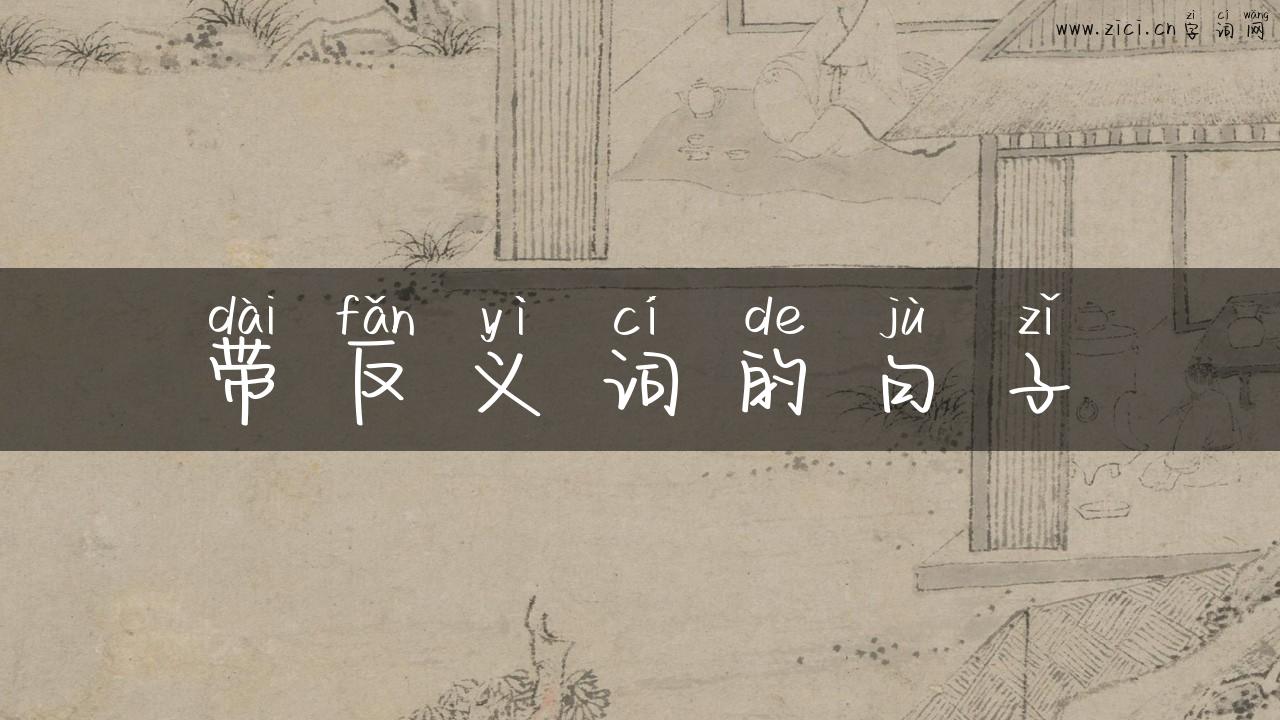 zì cí wǎng
www.zici.cn 字词网
dài fǎn yì cí de jù zǐ
带反义词的句子